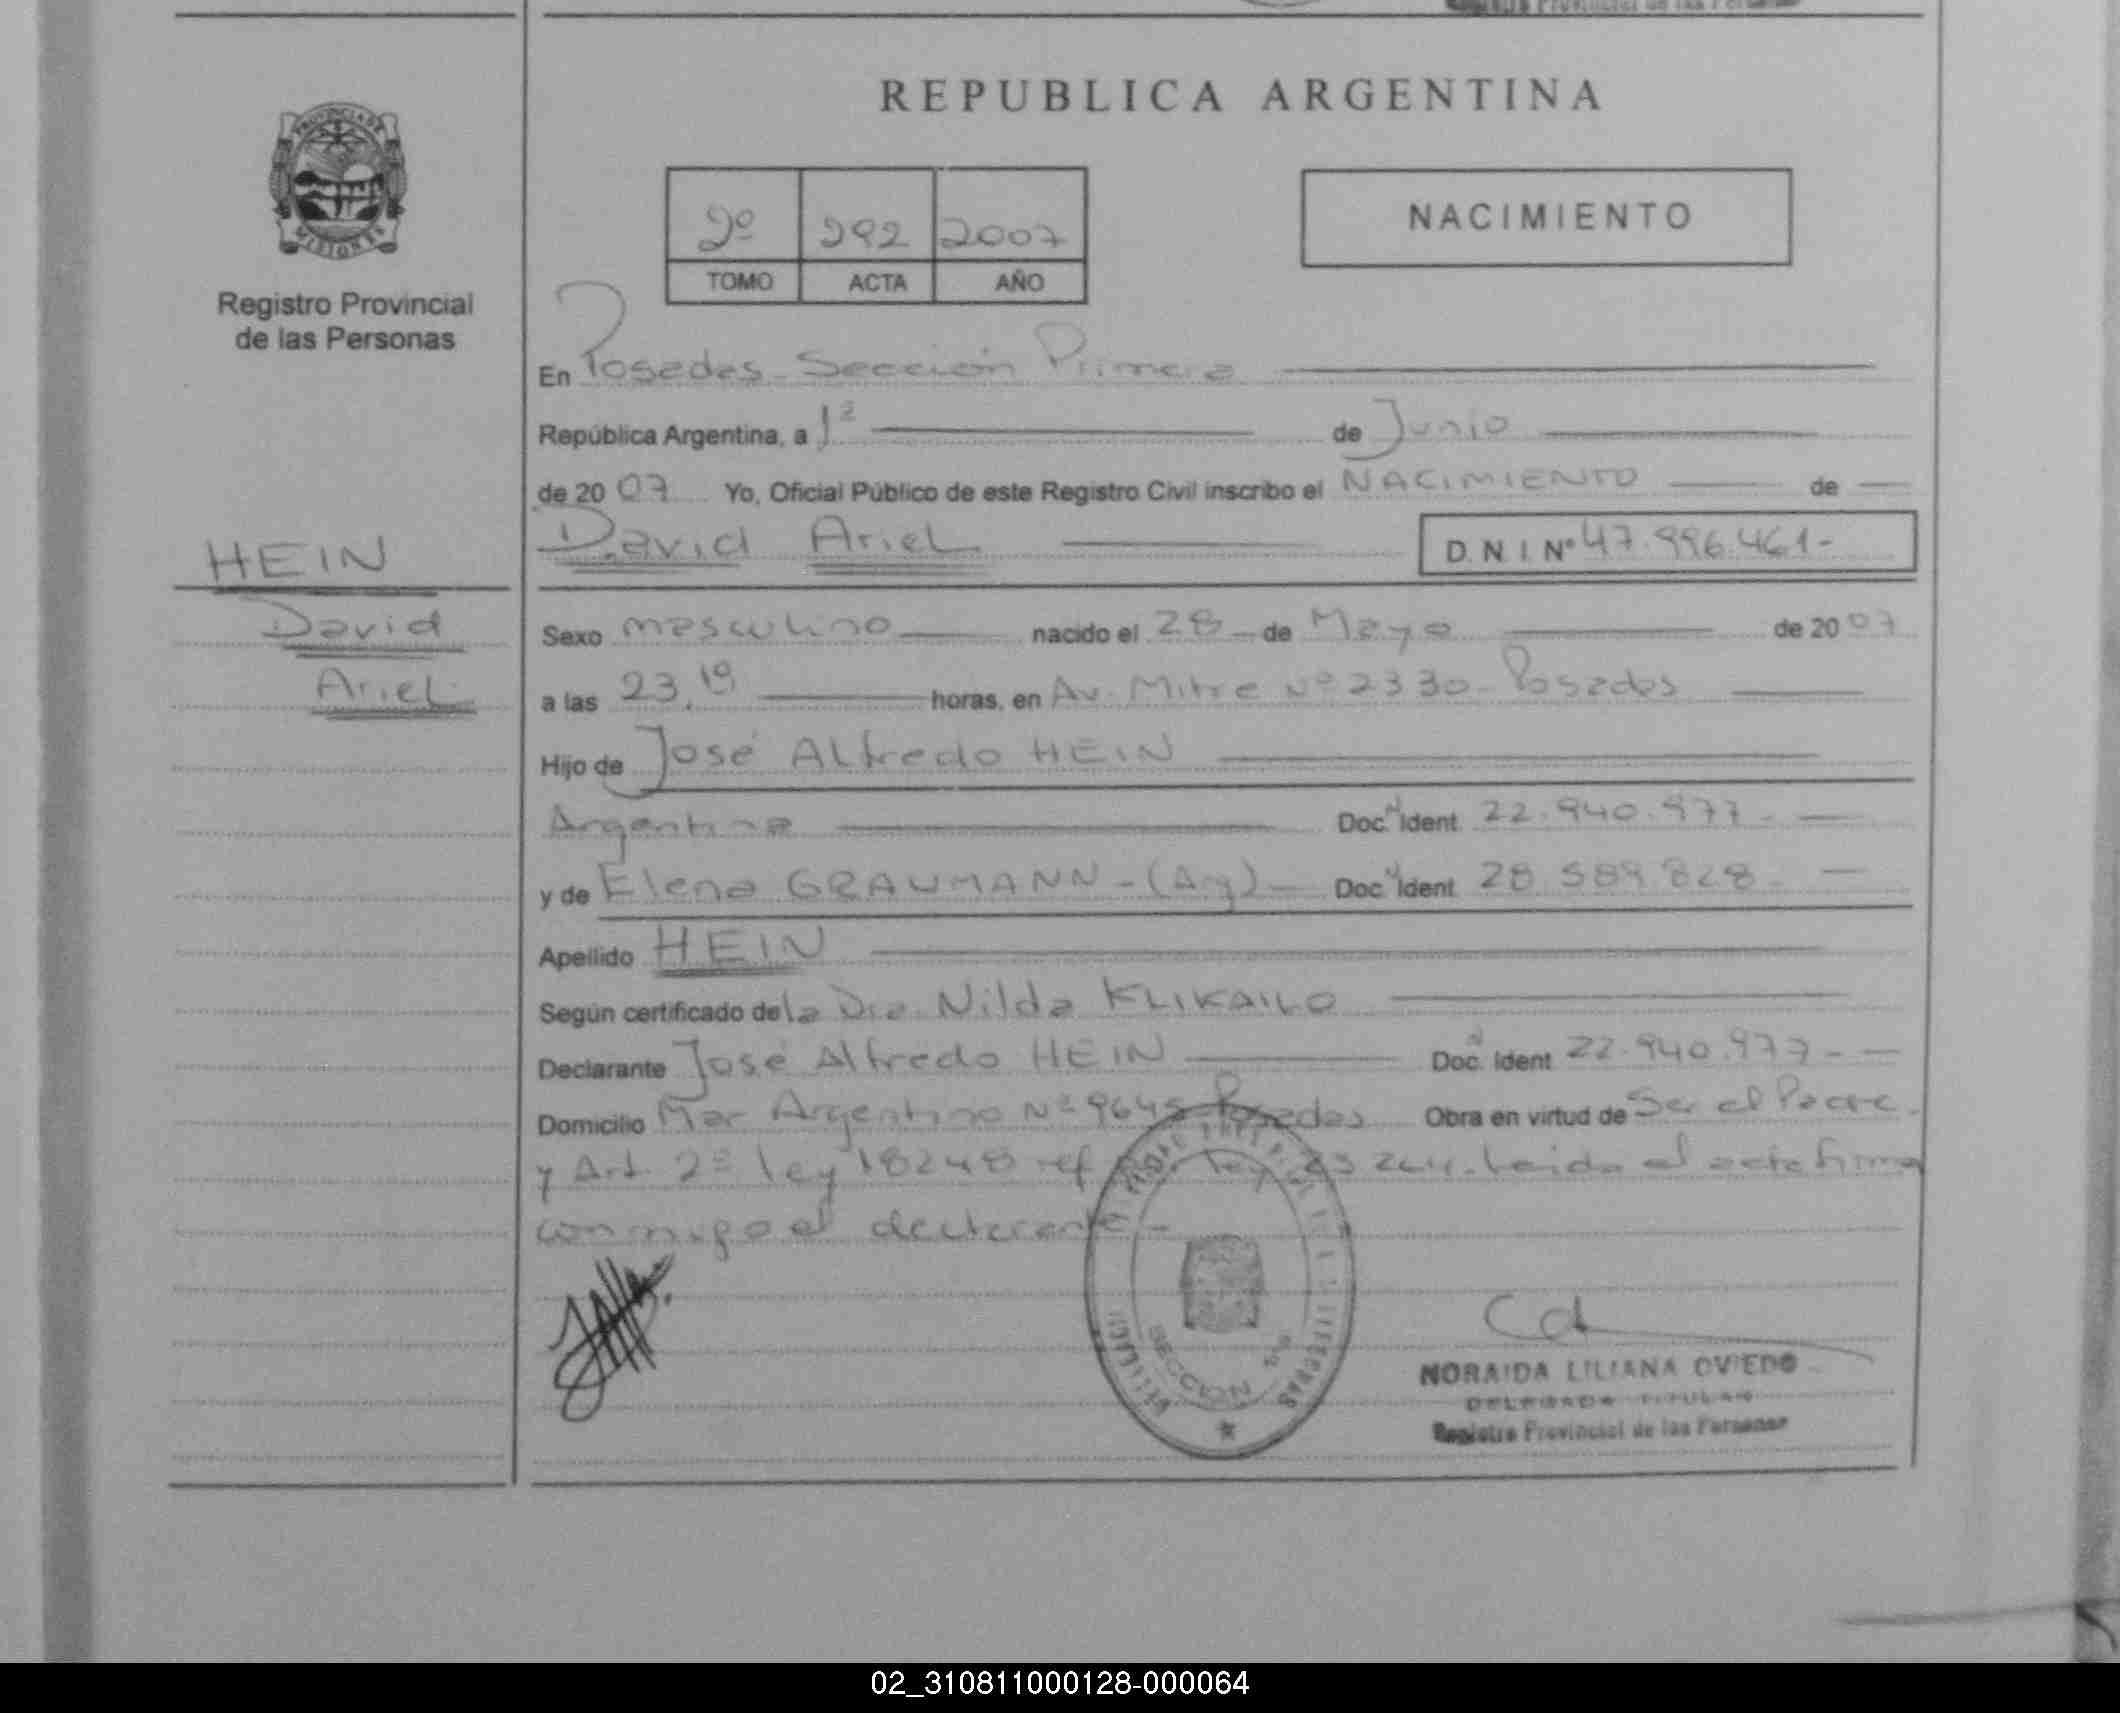 Registro Provincial de las Personas
REPUBLICA ARGENTINA
PROVINCIA DE
MISIONES
Registro Provincial
de las Personas
2º 292 2007
TOMO ACTA AÑO
NACIMIENTO
En Posadas Sección Primera
República Argentina, a 1º de Junio
de 20 07 Yo, Oficial Público de este Registro Civil inscribo el NACIMIENTO de
David Ariel D.N.I. Nº 47.996.461-
HEIN
David
Ariel
Sexo masculino nacido el 28 de Mayo de 20 07
a las 23,19 horas, en Av. Mitre Nº 2330 - Posadas
Hijo de José Alfredo HEIN
Argentina Doc. Ident. 22.940.977-
y de Elena GRAUMANN - (Arg) Doc. Ident. 28.589.828-
Apellido HEIN
Según certificado de la Dra. Nilda KLIKAILO
Declarante José Alfredo HEIN Doc. Ident. 22.940.977-
Domicilio Mar Argentino Nº 9645 Posadas Obra en virtud de Ser el Padre.
y Art. 2º ley 18248 ref ley 23264. Leida el acta firma
conmigo el declarante -
SECCION
NORAIDA LILIANA OVIEDO
DELEGADA TITULAR
Registro Provincial de las Personas
02_310811000128-000064